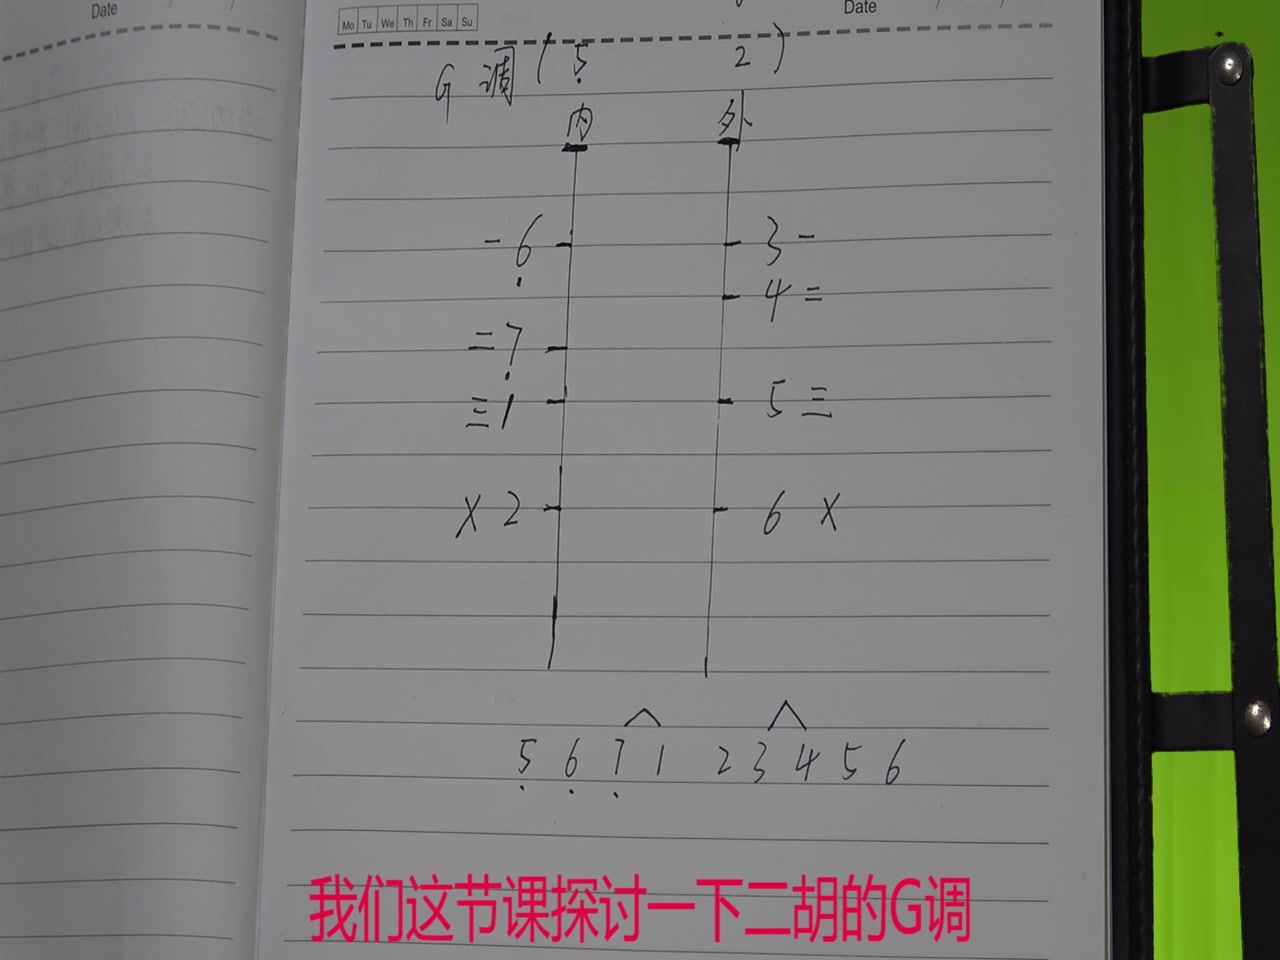 Date
Date
Mo Tu We Th Fr Sa Su
G 调 ( 5̣ 2 )
内 外
一 6̣ 3 一
4 二
二 7̣
三 1 5 三
X 2 6 X
5̣ 6̣ 7̣ 1 2 3 4 5 6
我们这节课探讨一下二胡的G调